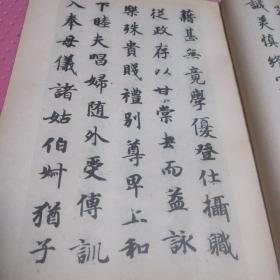 誠美慎終
藉甚無竟學優登仕攝職
從政存以甘棠去而益詠
樂殊貴賤禮別尊卑上和
下睦夫唱婦随外受傅訓
入奉母儀諸姑伯叔猶子